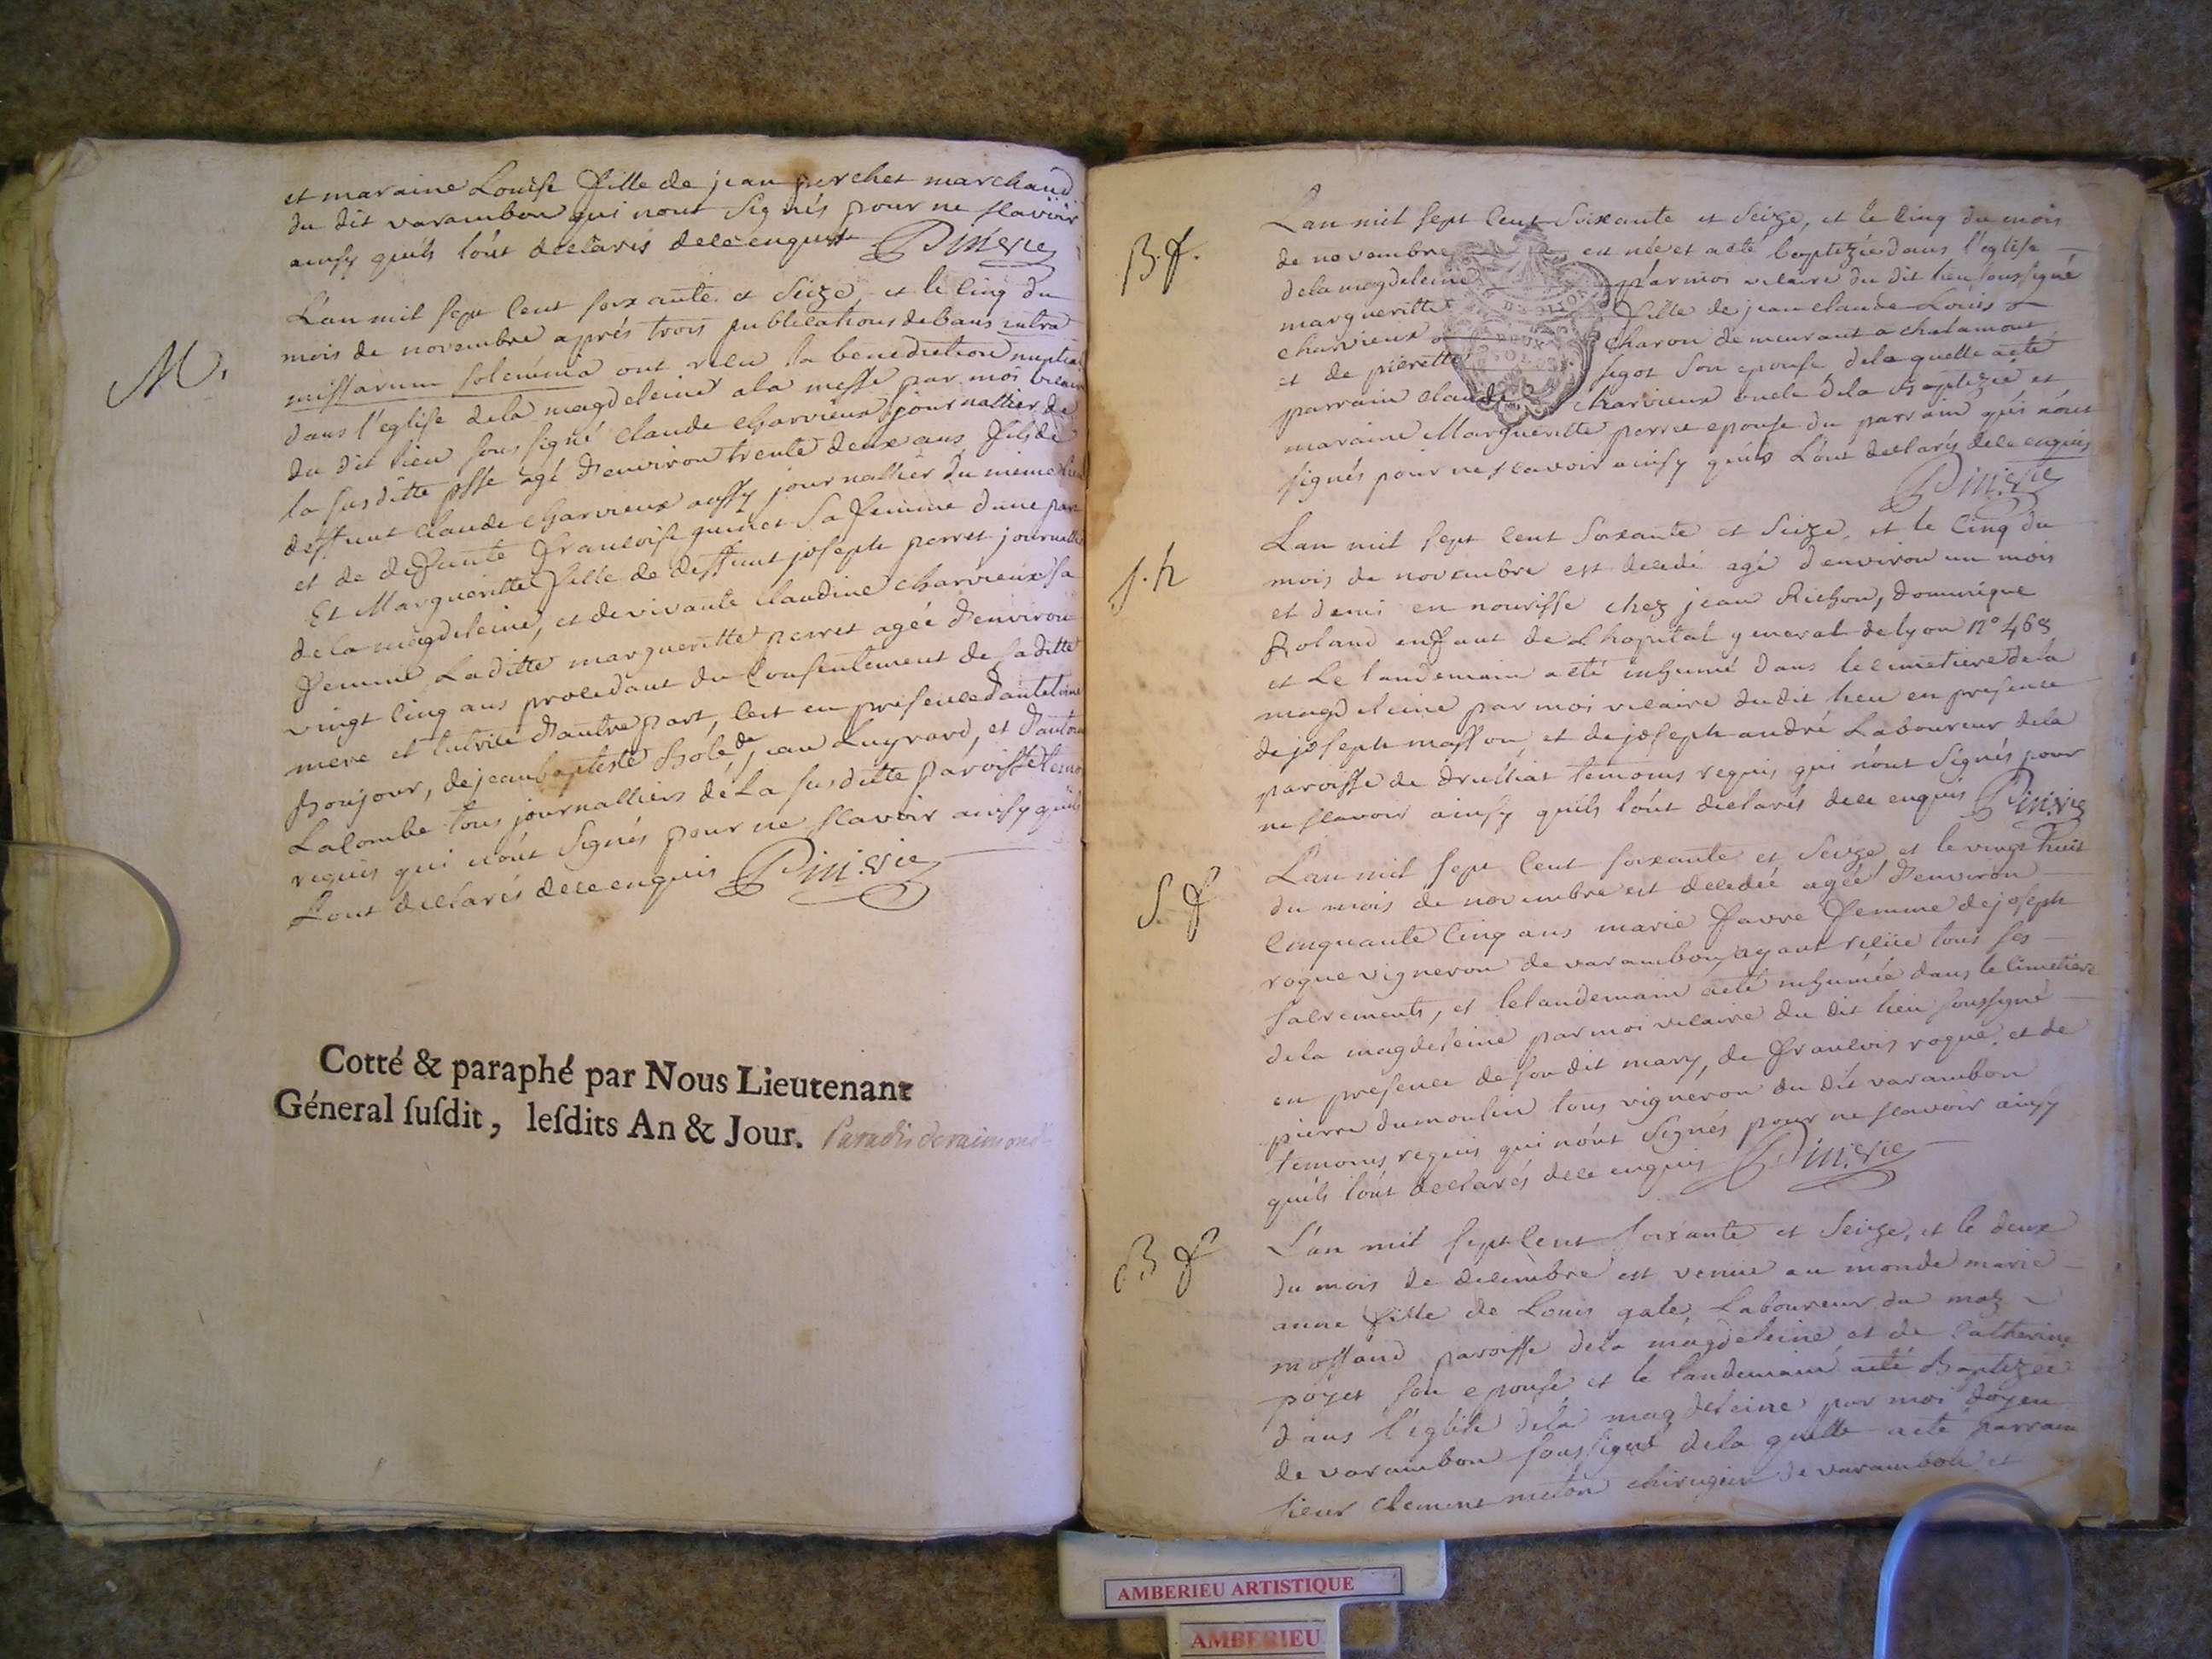 et maraine Louise fille de jean perchet marchand
du dit varambon qui nont signés pour ne scavoir
ainsy quils lont declarés de ce enquis Pin. vic
M.
L'an mil sept cent soixante et seize, et le cinq du
mois de novembre aprés trois publications de bans intra
missarum solemnia ont recu la benediction nuptial
dans l'eglise dela magdeleine a la messe par moi vicaire
du dit lieu soussigné claude charvieux journallier de
la susditte psse agé d'environ trente deux ans fils de
deffunt claude charvieux aussy journallier du meme lieu
et de defunte francoise guinet sa femme d'une part
Et Margueritte fille de deffunt joseph perret journallier
dela magdeleine, et de vivante claudine charvieux sa
femme Laditte margueritte perret agée d'environ
vingt cinq ans procedant du consentement de saditte
mere et tutrice d'autre part, c'est en presence d'antoine
Boujour, de jean baptiste de jean Luyrard, et d'antoine
Lacombe tous journalliers de La susditte paroisse temo
requis qui n'ont signés pour ne scavoir ainsy quils
Lont declarés de ce enquis Pin. vic
Cotté & paraphé par Nous Lieutenant
Géneral susdit, lesdits An & Jour. Paradis de raimondi
B. f.
L'an mil sept cent soixante et seize, et le cinq du mois
de novembre est née et a eté baptizée dans l'eglise
dela magdeleine par moi vicaire du dit lieu soussigné
margueritte fille de jean claude Louis
charvieux charon demeurant a chalamont
et de pierette segot son epouse dela quelle a eté
parrain claude charvieux oncle dela baptizée et
maraine Margueritte perret epouse du parrain qui n'ont
signés pour ne scavoir ainsy quils L'ont declarés de ce enquis
Pin. vic
S. h
L'an mil sept cent soixante et seize, et le cinq du
mois de novembre est decedé agé d'environ un mois
et demi en nourisse chez jean Richon, dominique
Roland enfant de L'hopital general de lyon n° 468
et Le landemain a eté inhumé dans le cimetiere dela
magdeleine par moi vicaire dudit lieu en presence
de joseph masson, et de joseph andré Laboureur dela
paroisse de druillat temoins requis qui n'ont signés pour
ne scavoir ainsy quils l'ont declarés de ce enquis Pin. vic
S. f
L'an mil sept cent soixante et seize et le vingt huit
du mois de novembre est decedée agée d'environ
cinquante cinq ans marie favre femme de joseph
roque vigneron de varambon, ayant recue tous ses
sacrements, et le landemain a eté inhumée dans le cimetiere
dela magdeleine par moi vicaire du dit lieu soussigné
en presence de son dit mary, de francois roque, et de
pierre dumoulin tous vigneron du dit varambon
temoins requis qui n'ont signés pour ne scavoir ainsy
quils l'ont declarés de ce enquis Pin. vic
B f
L'an mil sept cent soixante et seize, et le deux
du mois de decembre est venue au monde marie
anne fille de Louis gate Laboureur du maz
mossand paroisse dela magdeleine et de catherine
poyet son epouse et le landemain a eté Baptizée
dans l'eglise dela magdeleine par moi doyen
de varambon soussigné dela quelle a eté parrain
sieur clement meton chirugien de varambon et
AMBERIEU ARTISTIQUE
AMBERIEU